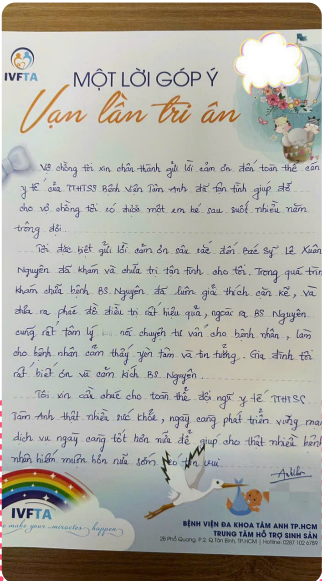 IVFTA
MỘT LỜI GÓP Ý
Vạn lần tri ân
Vợ chồng tôi xin chân thành gửi lời cảm ơn đến toàn thể cán
y tế của TTHTSS Bệnh Viện Tâm Anh đã tận tình giúp đỡ
cho vợ chồng tôi có được một em bé sau suốt nhiều năm
trông đợi.
Tôi đặc biệt gửi lời cảm ơn sâu sắc đến Bác Sỹ Lê Xuân
Nguyên đã khám và chữa trị tận tình cho tôi. Trong quá trìn
khám chữa bệnh BS. Nguyên đã luôn giải thích cặn kẽ, và
đưa ra phác đồ điều trị rất hiệu quả, ngoài ra BS Nguyên
cũng rất tâm lý nói chuyện tư vấn cho bệnh nhân, làm
cho bệnh nhân cảm thấy yên tâm và tin tưởng. Gia đình tôi
rất biết ơn và cảm kích BS. Nguyên
Tôi xin cầu chúc cho toàn thể đội ngũ y tế TTHTSS
Tâm Anh thật nhiều sức khỏe, ngày càng phát triển vững mạ
dịch vụ ngày càng tốt hơn nữa để giúp cho thật nhiều bệnh
nhân hiếm muộn hơn nữa sớm có tin vui.
IVFTA
make your miracles happen
BỆNH VIỆN ĐA KHOA TÂM ANH TP.HCM
TRUNG TÂM HỖ TRỢ SINH SẢN
2B Phổ Quang, P.2, Q.Tân Bình, TP.HCM | Hotline: 0287 102 6789